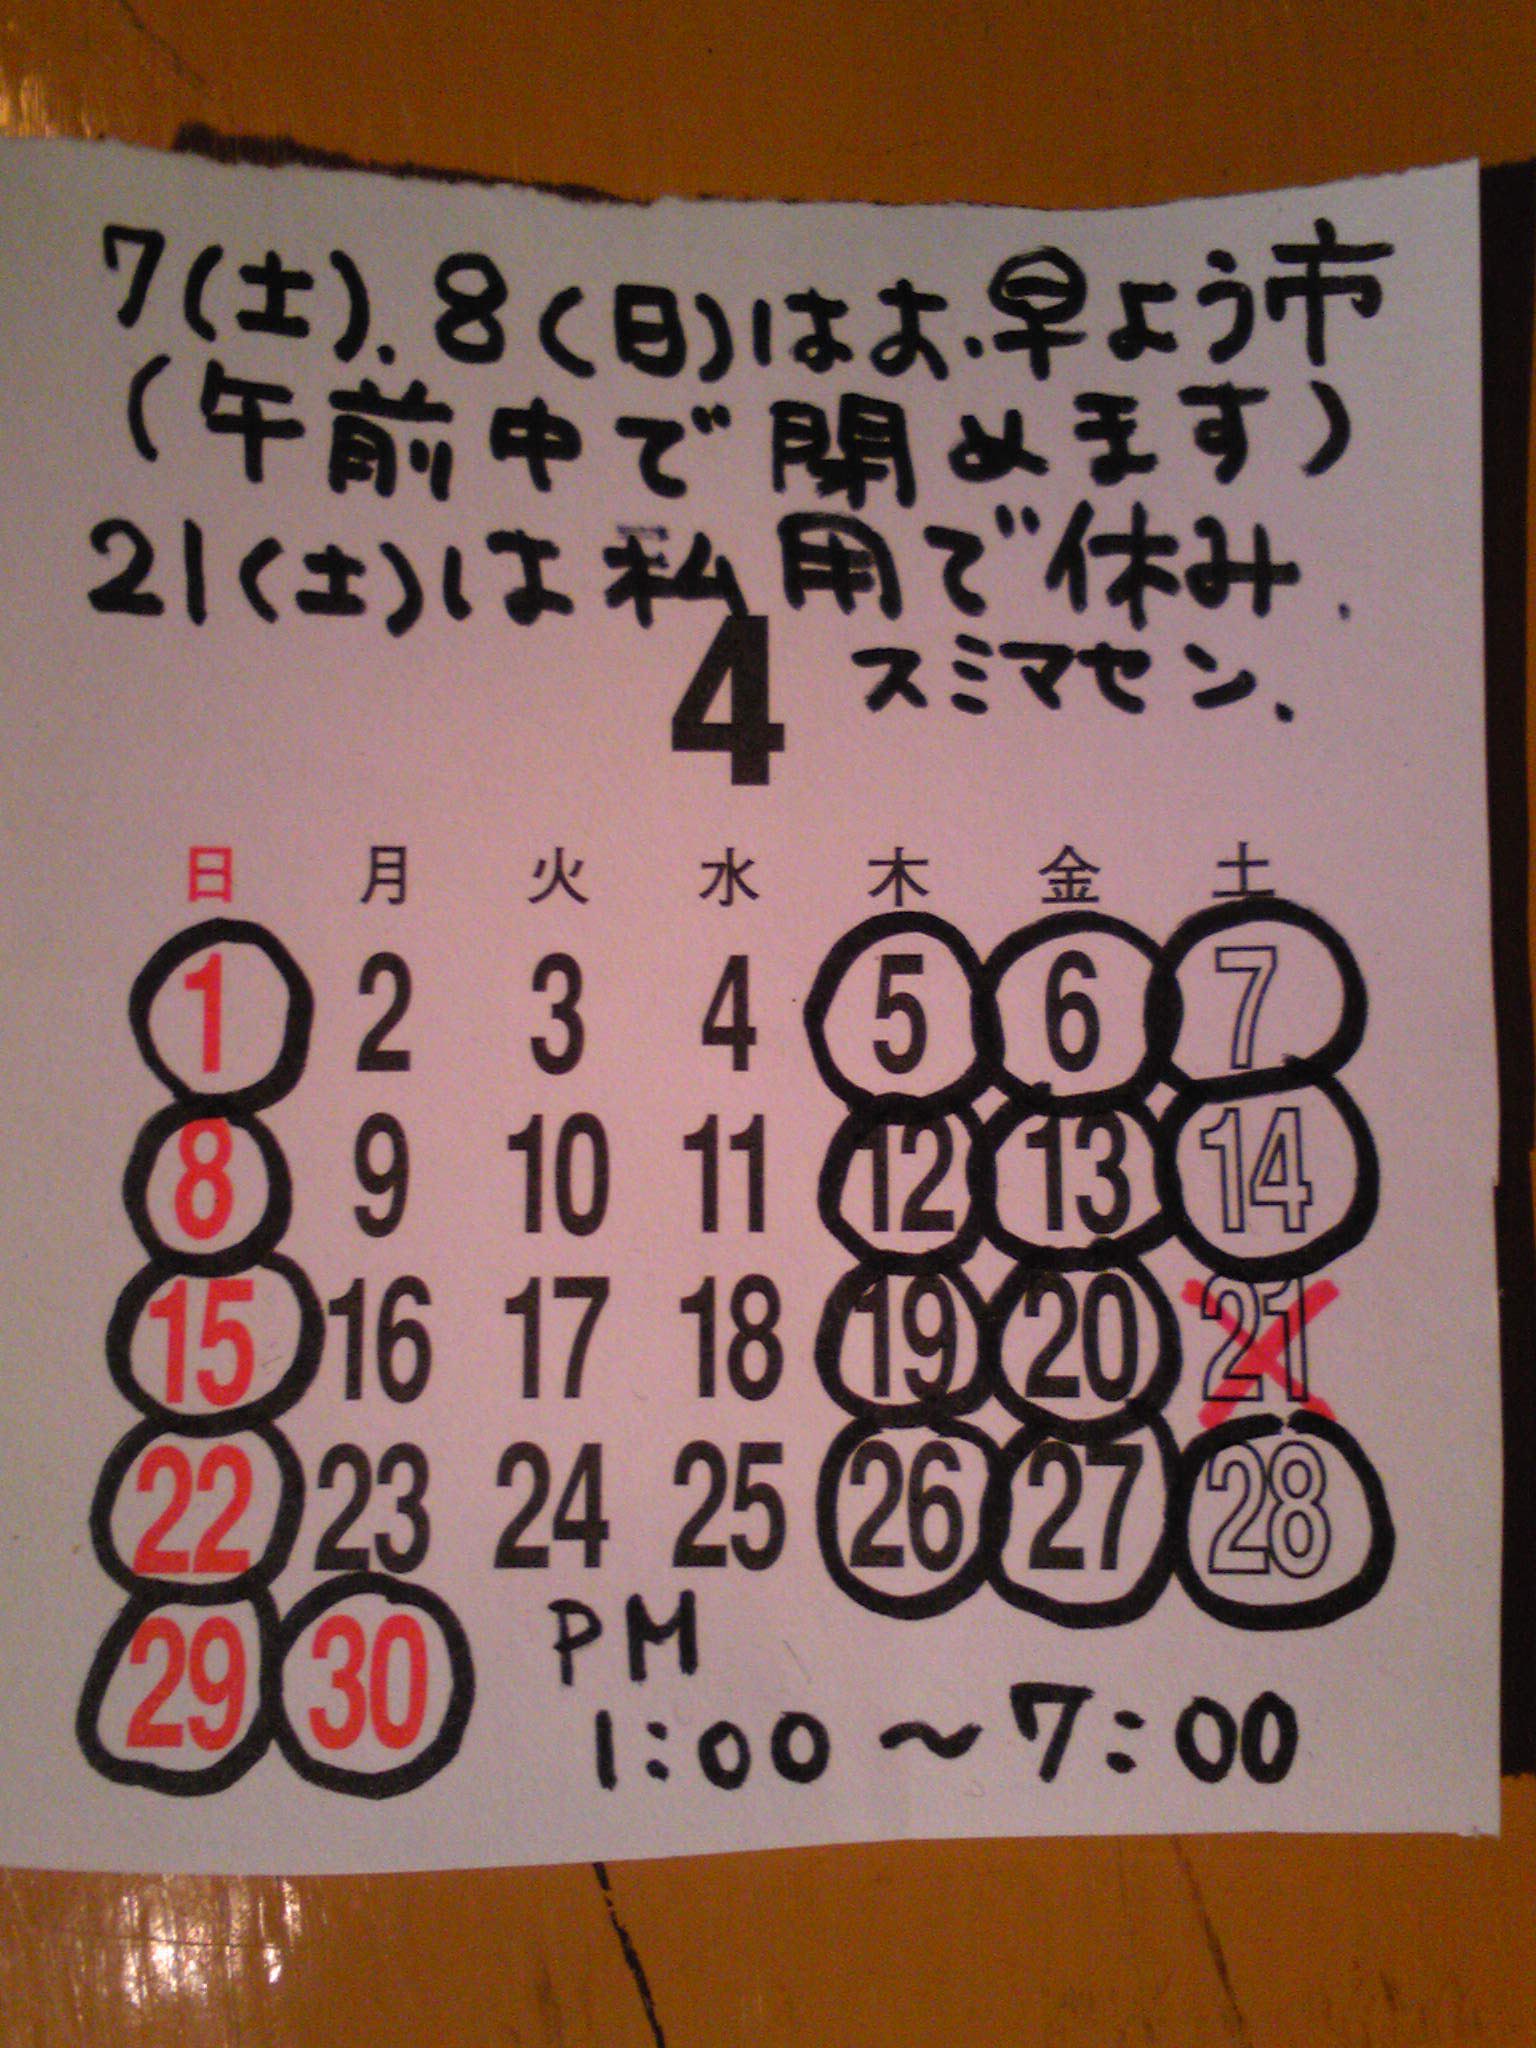 7(土).8(日)はお.早よう市
(午前中で閉めます)
21(土)は私用で休み.
スミマセン.
4
日 月 火 水 木 金 土
1 2 3 4 5 6 7
8 9 10 11 12 13 14
15 16 17 18 19 20 21
22 23 24 25 26 27 28
29 30
PM
1:00～7:00